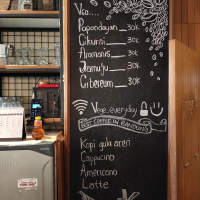 V60....
Papandayan__30K
Cikurai ___30K
Aromanis___30K
Mamuju__30K
Cibereum__30K
Vege.everyday
BEST COFFEE IN BANDUNG
Kopi gula aren
Cappucino
Americano
Latte